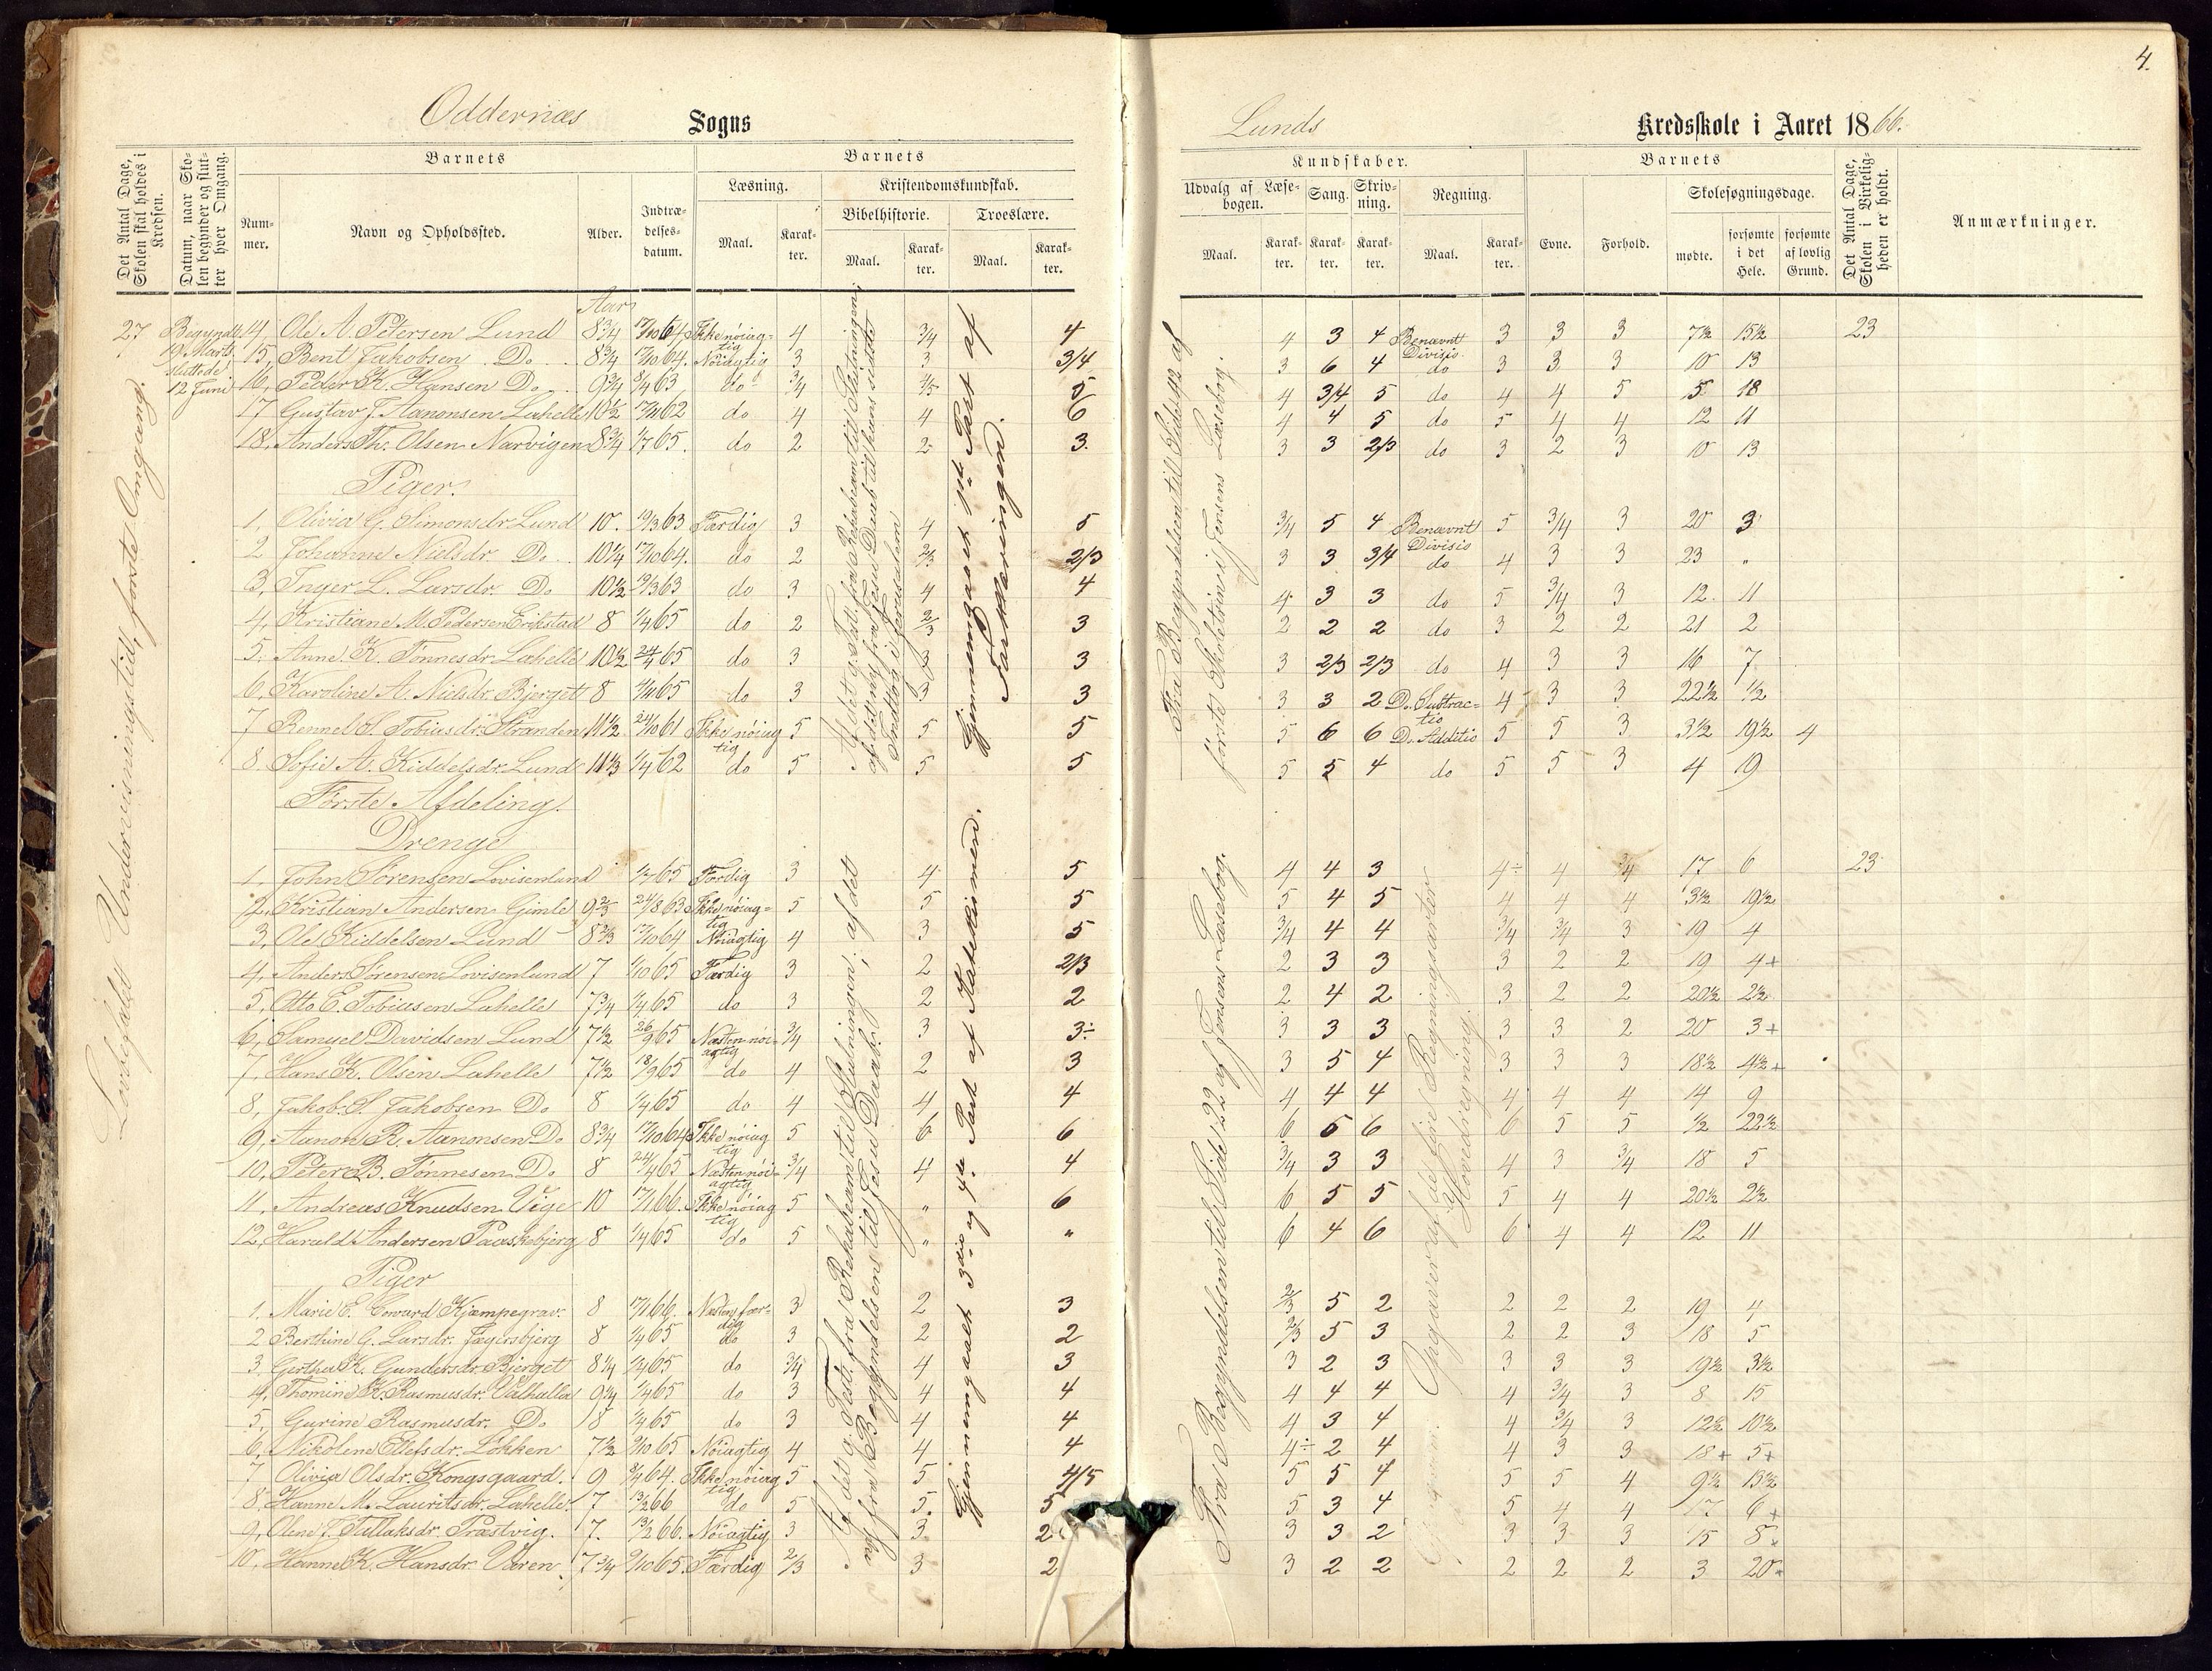 4.
Oddernæs Sogns
Lunds Kredsskole i Aaret 1866.
Det Antal Dage, Skolen skal holdes i Kredsen.
Datum, naar Skolen begynder og slutter hver Omgang.
Barnets
Nummer.
Navn og Opholdssted.
Alder.
Indtrædelsesdatum.
Barnets
Læsning.
Maal.
Karakter.
Kristendomskundskab.
Bibelhistorie.
Maal.
Karakter.
Troeslære.
Maal.
Karakter.
Kundskaber.
Udvalg af Læsebogen.
Maal.
Karakter.
Sang.
Karakter.
Skrivning.
Karakter.
Regning.
Maal.
Karakter.
Barnets
Evne.
Forhold.
Skolesøgningsdage.
mødte.
forsømte i det Hele.
forsømte af lovlig Grund.
Det Antal Dage, Skolen i Virkeligheden er holdt.
Anmærkninger.
27
Begyndte 19 Marts sluttede 12 Juni
Lovbefalet Undervisningstid, første Omgang.
Aar
14, Ole A. Petersen Lund 8 3/4 17/10 64 Ikke nöiagtig 4 3/4 4 4 3 4 Benævnt Divisio 3 3 3 7 1/2 15 1/2 23
15, Bent Jakobsen Do 8 3/4 17/10 64. Nöiagtig 3 3 3/4 3 6 4 do 3 3 3 10 13
16, Peder K. Hansen Do 9 3/4 8/4 63 do 3/4 4/5 5 4 3/4 5 do 4 4 5 5 18
17 Gustav F. Aanonsen Lahelle 10 1/2 17/11 62 do 4 4 6 4 4 5 do 5 4 4 12 11
18, Anders Th. Olsen Narvigen 8 3/4 1/7 65. do 2 2 3. 3 3 2/3 do 3 2 3 10 13
Piger.
1, Olivia G. Simonsdr. Lund 10. 19/3 63 Færdig 3 4 5 3/4 5 4 Benævnt Divisio 5 3/4 3 20 3
2 Johanne Nielsdr. Do 10 1/4 17/10 64. do 2 2/3 2/3 3 3 3/4 do 4 3 3 23 "
3, Inger L. Larsdr. Do 10 1/2 19/3 63 do 3 4 4 4 3 3 do 5 3/4 3 12. 11
4, Kristiane M. Pedersen Erikstad 8 1/4 65 do 2 2/3 3 2 2 2 do 3 2 2 21 2
5. Anne K. Tönnesdr. Lahelle 10 1/2 24/4 65 do 3 3 3 3 2/3 2/3 do 4 3 3 16 7
6, Karoline A. Nielsdr. Bjerget 8 4/11 65 do 3 3 3 3 3 2 Do. Subtractio 4 3 3 22 1/2 1/2
7 Rennel S. Tobiasdr. Stranden 11 1/2 24/10 61 Ikke nöiagtig 5 5 5 5 6 6 Do. Additio 5 5 3 3 1/2 19 1/2 4
8. Sofie A. Kiddelsdr. Lund 11 1/3 1/4 62 do 5 5 5 5 5 4 do 5 5 3 4 19
Gjennemgaaet 1ste Part af Forklaringen.
Fra Begyndelsen til Side 42 af første Skoletrin i Jensens Læsebog.
Første Afdeling.
Drenge
1, John Sörensen Lovisenlund 1/7 65 Færdig 3 4 5 4 4 3 4÷ 4 3/4 17 6 23
2, Kristian Andersen Gimle 9 2/3 24/8 63 Ikke nöiagtig 5 5 5 5 4 5 4 4 4 3 1/2 19 1/2
3, Ole Kiddelsen Lund 8 2/3 17/10 64 Nöiagtig 4 3 5 3/4 4 4 3/4 3/4 3 19 4
4, Anders Sörensen Lovisenlund 7 1/10 65 Færdig 3 2 2/3 2 3 3 3 2 2 19 4+
5, Otto E. Tobiasen Lahelle 7 3/4 1/4 65 do 3 2 2 2 4 2 3 2 2 20 1/2 2 1/2
6, Samuel Davidsen Lund 7 1/2 26/9 65 Næsten nöiagtig 3/4 3 3÷ 3 3 3 3 3 2 20 3+
7, Hans K. Olsen Lahelle 7 1/2 18/9 65 do 4 2 3 3 5 4 3 3 3 18 1/2 4 1/2+
8, Jakob S. Jakobsen Do 8 1/4 65 do 4 4 4 4 4 4 4 4 4 14 9
9, Aanon R. Aanonsen Do 8 3/4 17/10 64 Ikke nöiagtig 5 6 6 6 5 6 6 5 5 1/2 22 1/2
10, Peter B. Tönnesen Do 8 24/4 65 Næsten nöiagtig 3/4 4 4 3/4 3 3 4 3 3/4 18 5
11, Andreas Knudsen Vige 10 17/1 66. Ikke nöiagtig 5 " 6 6 5 5 5 4 4 20 1/2 2 1/2
12, Harald Andersen Paaskebjerg 8 1/4 65 do 5 " " 6 4 6 6 4 4 12 11
Piger
1, Marie E. Coward Kjæmpegrav. 8 17/1 66. Næsten færdig 3 2 3 2/3 5 2 2 2 2 19 4
2 Berthine G. Larsdr. Jægersbjerg 8 1/4 65 do 3 2 2 2/3 5 3 2 2 3 18 5
3 Gerthe K. Gundersdr. Bjerget 8 1/4 1/4 65 do 3/4 4 3 3 2 3 3 3 3 19 1/2 3 1/2
4, Thomine K. Rasmusdr. Valhalla 9 1/4 1/4 65 do 3 4 4 4 4 4 4 3/4 3 8 15
5, Gurine Rasmusdr. Do 8 1/4 65 do 3 4 4 4 3 4 4 3/4 3 12 1/2 10 1/2
6, Nikoline Ellefsdr. Lökken 7 1/2 9/10 65 Nöiagtig 4 4 4 4÷ 2 4 4 3 3 18+ 5+
7 Olivia Olsdr. Kongsgaard. 9 8/4 64. Ikke nöiagtig 5 5 4/5 5 5 4 5 5 4 9 1/2 13 1/2
8, Hanne M. Lauritsdr. Lahelle. 7 13/2 66 do 5 5. 5 5 3 4 5 4 4 17 6+
9, Oline T. Tellaksdr. Præstvig. 7. 13/2 66. Nöiagtig 3 3 2 3 3 2 3 3 3 15 8+
10, Hanne K. Hansdr. Varen 7 3/4 9/10 65. Færdig 2/3 3 2 3 2 2 2 2 2 3 20+
Gjennemgaaet 3die og 4de Part af Katekismen.
Fra Begyndelsen til Side 122 af Jensens Læsebog.
Opgaver af de fire Regningsarter Hovedregning.